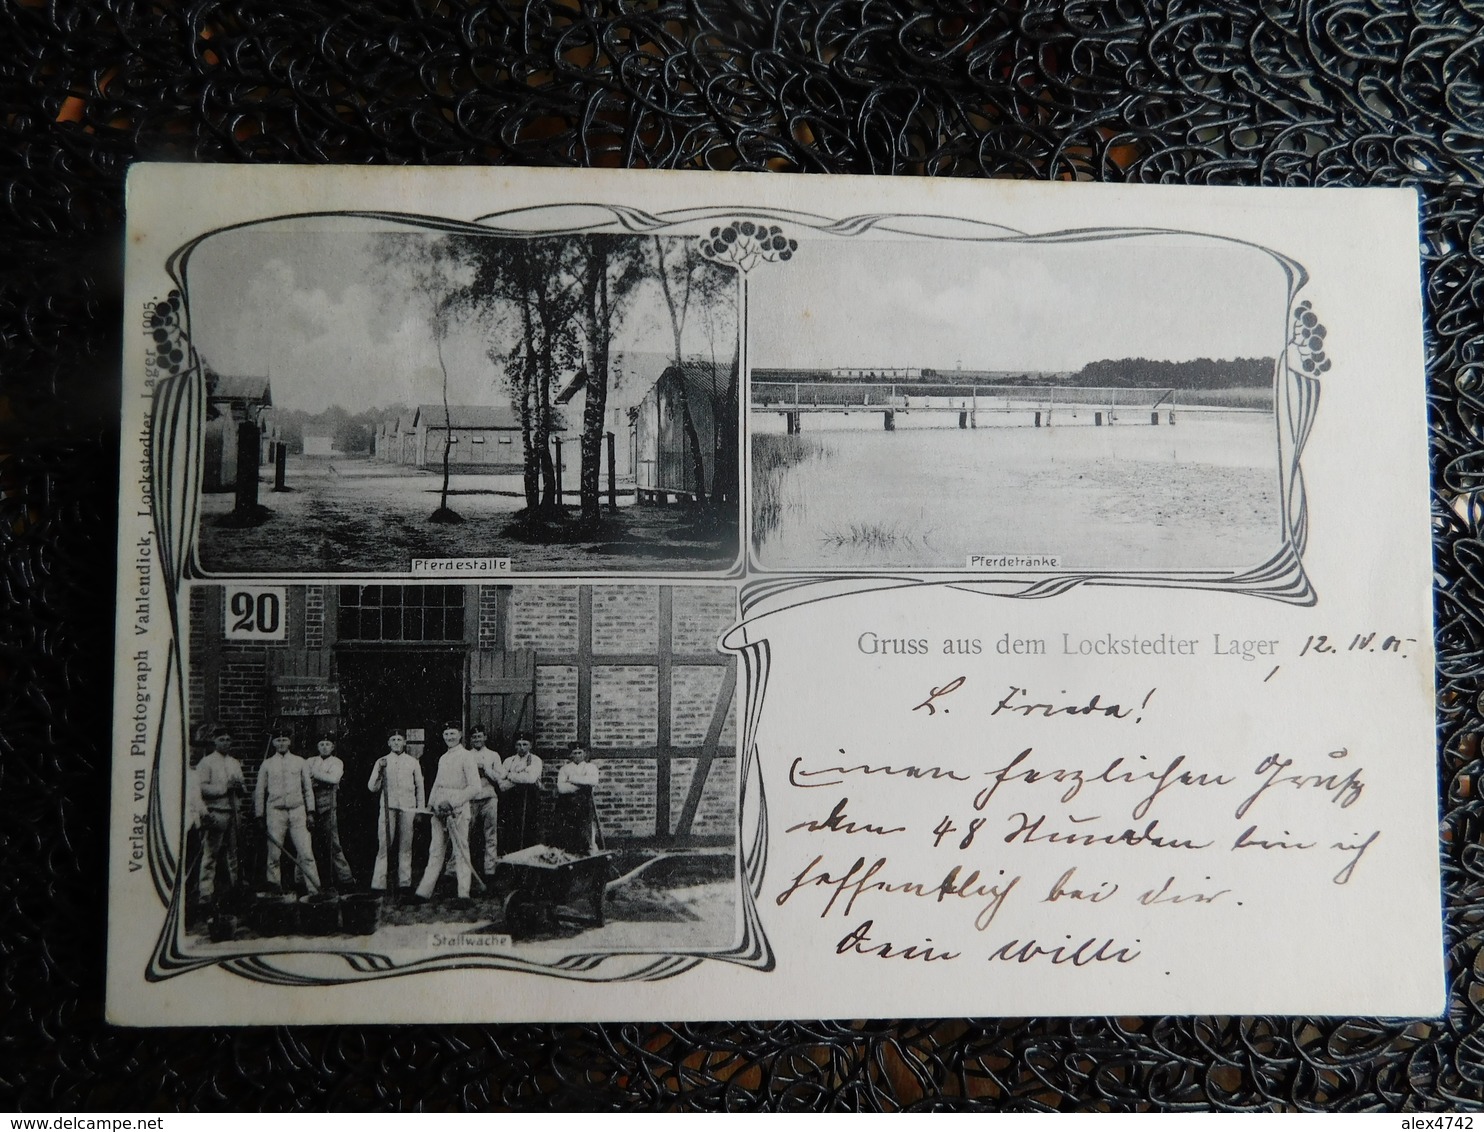 Verlag von Photograph Vahlendick, Lockstedter Lager 1905.
Pferdeställe
Pferdetränke.
20
Stallwache
Gruss aus dem Lockstedter Lager 12. IV. 05.
L. Frieda!
Einen herzlichen Gruß
48 Stunden bin ich
hoffentlich bei dir.
Dein Willi
delcampe.net
alex4742